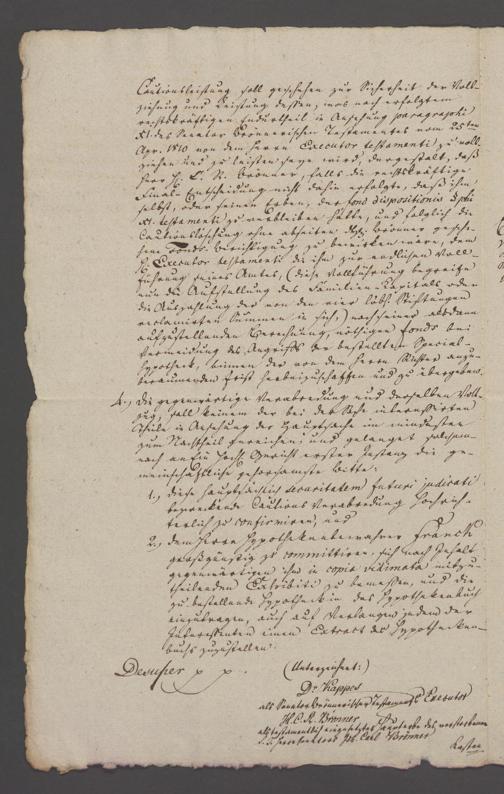 Cautionsleistung soll geschehen zur Sicherheit der Voll-
ziehung und Leistung dessen, was nach erfolgtem
rechtskräftigen Endurtheil in Ansehung paragraphi
XI. des Senator Brönnerischen Testamentes vom 25ten
Apr. 1810 von dem Herrn Executor testamenti zu voll-
ziehen und zu leisten seyn wird, dergestalt, daß
Herr H. C. R. Brönner, falls die rechtskräftige
Final-Entscheidung nicht dahin erfolgte, daß ihm
selbst, oder seinen Erben, der fond dispositionis §phi
XI. testamenti zu verbleiben hätte, und folglich die
Cautionsleistung ohne Brönner gesche-
hene Fonds-Berichtigung zu bewirken wäre, dem
H. Executor testamenti die ihm zur endlichen Voll-
führung seines Amtes, (diese Vollführung begreife
nun die Aufstellung des Familien-Capitals oder
die Auszahlung der von den vier löbl. Stiftungen
reclamirten Summen in sich,) nach einer alsdann
aufzustellenden Berechnung, nöthigen Fonds bei
Vermeidung des Angriffs der bestellten Special-
Hypothek, binnen der von dem Herrn Richter anzu-
beraumenden Frist herbeizuschaffen und zu übergeben.
4., Die gegenwärtige Verabredung und derselben Voll-
zug, soll keinem der bei der Sache interessirten
Theile in Ansehung der Hauptsache im mindesten
zum Nachtheil gereichen; und gelanget
nach an Ein Hochl. Gericht erster Instanz die ge-
meinschaftliche gehorsamste Bitte:
1., diese hauptsächlich securitatem futuri judicati
bezweckende Cautions Verabredung Hochrich-
terlich zu confirmiren, und
2., dem Herrn Hypothekenbewahrer Franck
großgünstig zu committiren, sich nach Inhalt
gegenwärtigen ihm in copia vidimata mitzu-
theilenden Exhibiti zu bemessen, und die
zu bestellende Hypothek in das Hypothekenbuch
einzutragen, auch auf Verlangen jedem der
Interessenten einen Extract des Hypotheken-
buchs zuzustellen.
Desuper p p.
(Unterzeichnet:)
Dr Kappes
als Senator Brönnerischer Testaments Executor
H. C. R. Brönner
als testamentlich eingesetzter des verstorbenen
Carl Brönner